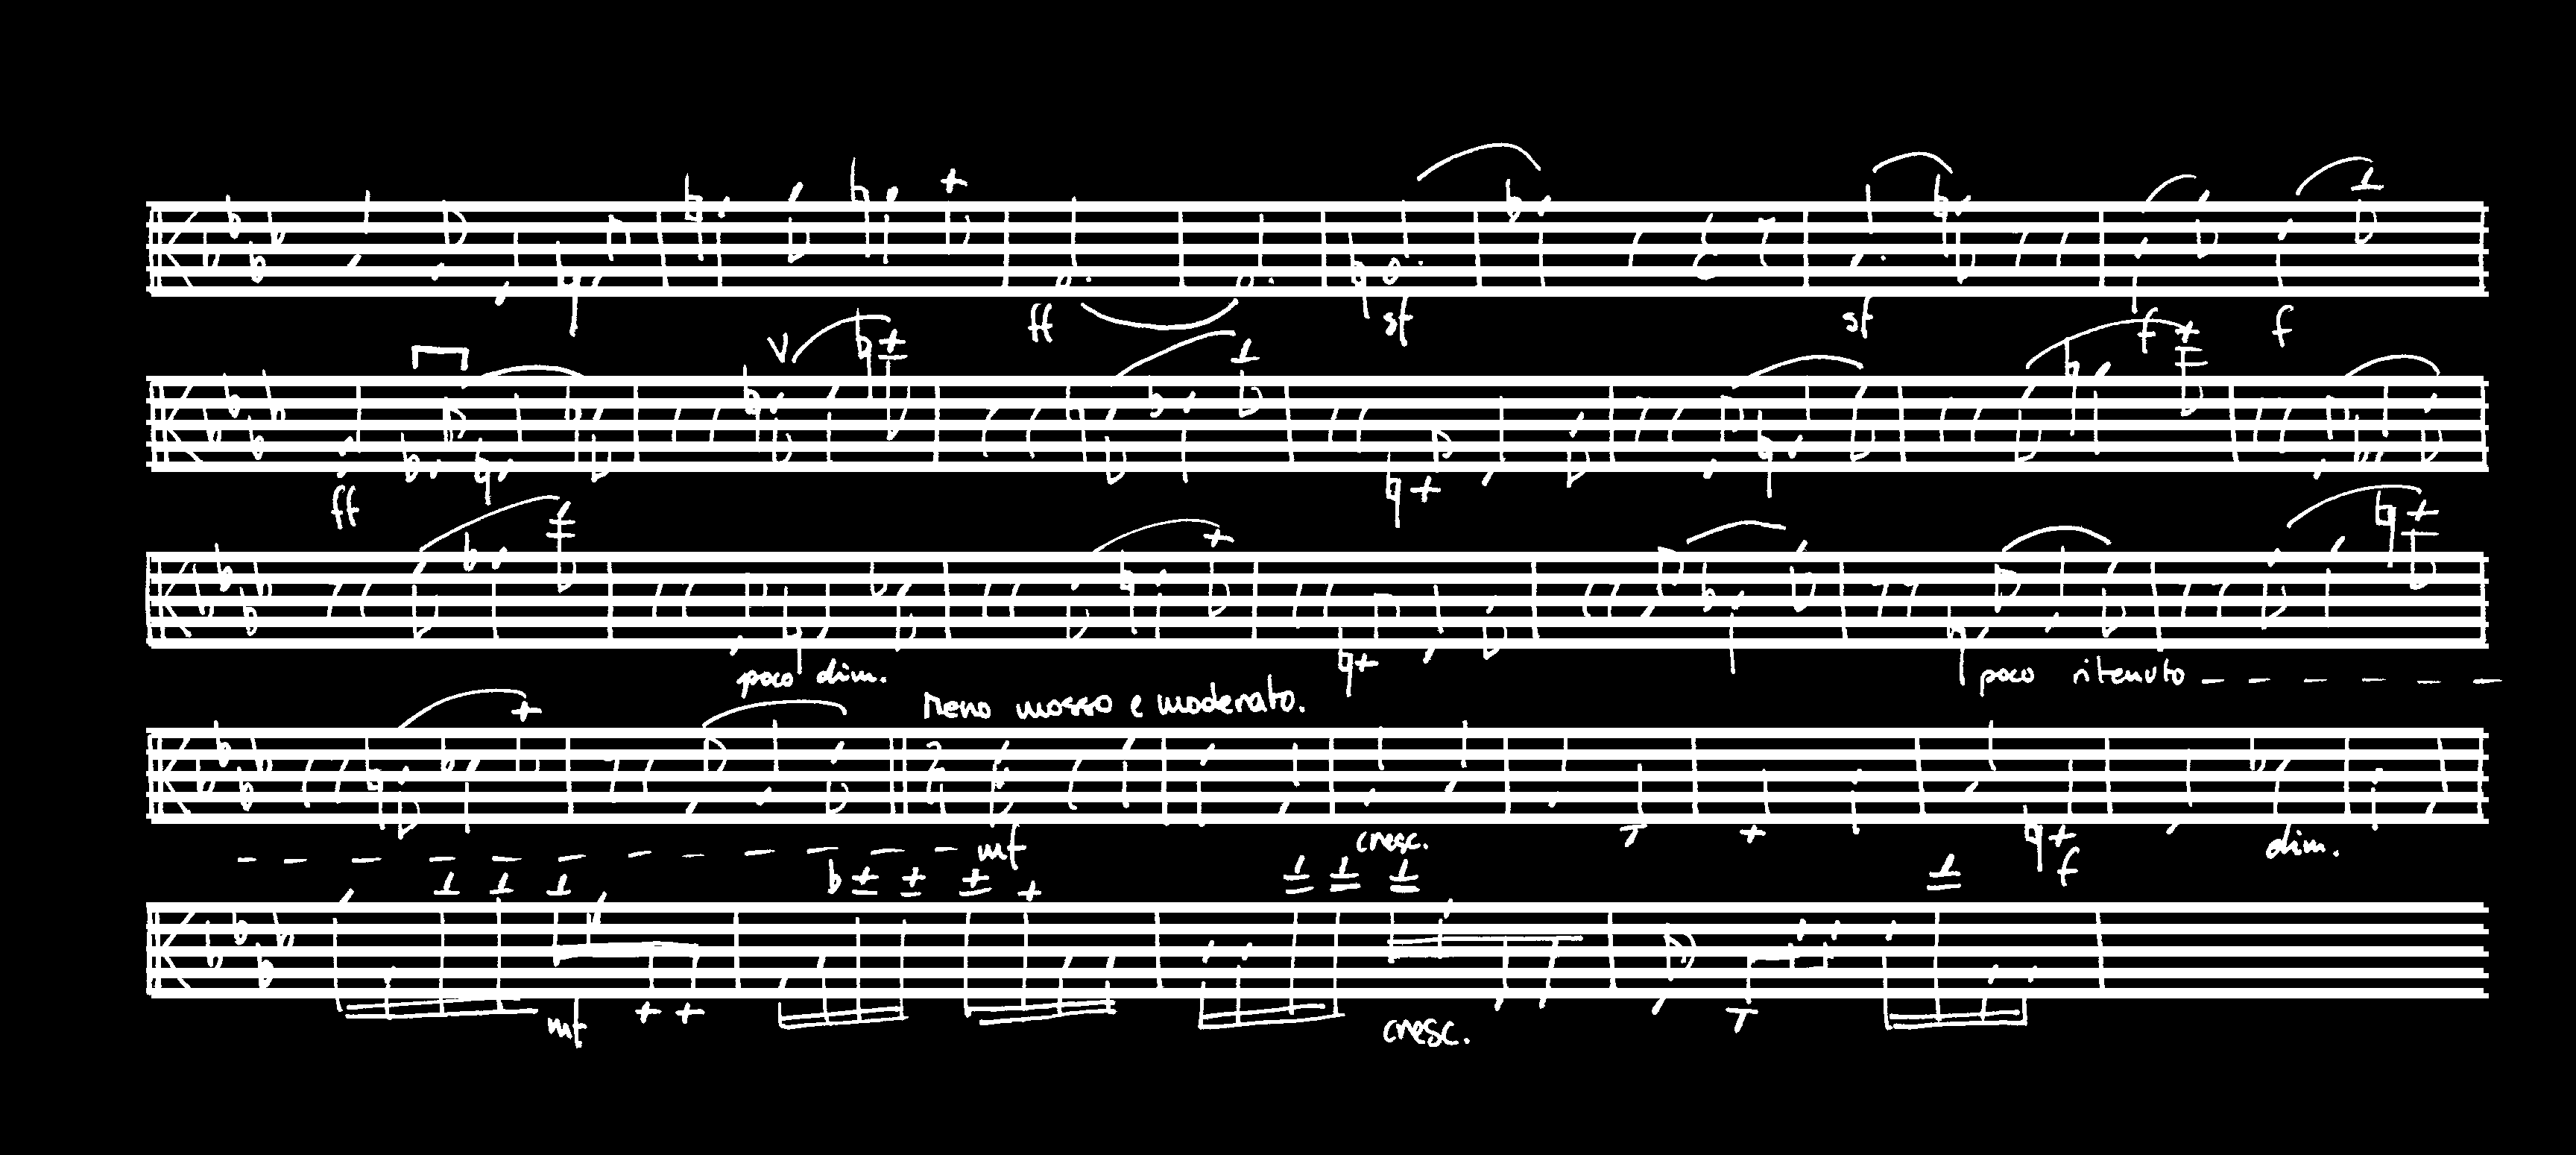 ff sf sf f f
V
ff
poco dim. poco ritenuto
Meno mosso e moderato.
mf cresc. f dim.
mf cresc.